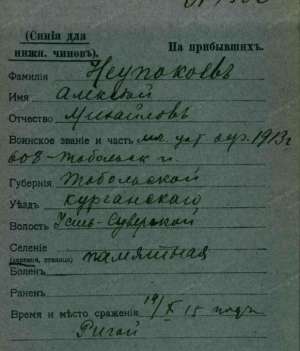 (Синія для
нижн. чиновъ).
На прибывшихъ.
Фамилія Неупокоевъ
Имя Алексѣй
Отчество Михайловъ
Воинское званіе и часть мл. унт. окр. 1913г
608 Тобольск п.
Губернія Тобольской
Уѣздъ Курганскаго
Волость Усть-Суерской
Селеніе
(деревня, станица) Памятная
Боленъ
Раненъ
Время и мѣсто сраженія 19/X 15 подъ
Ригой